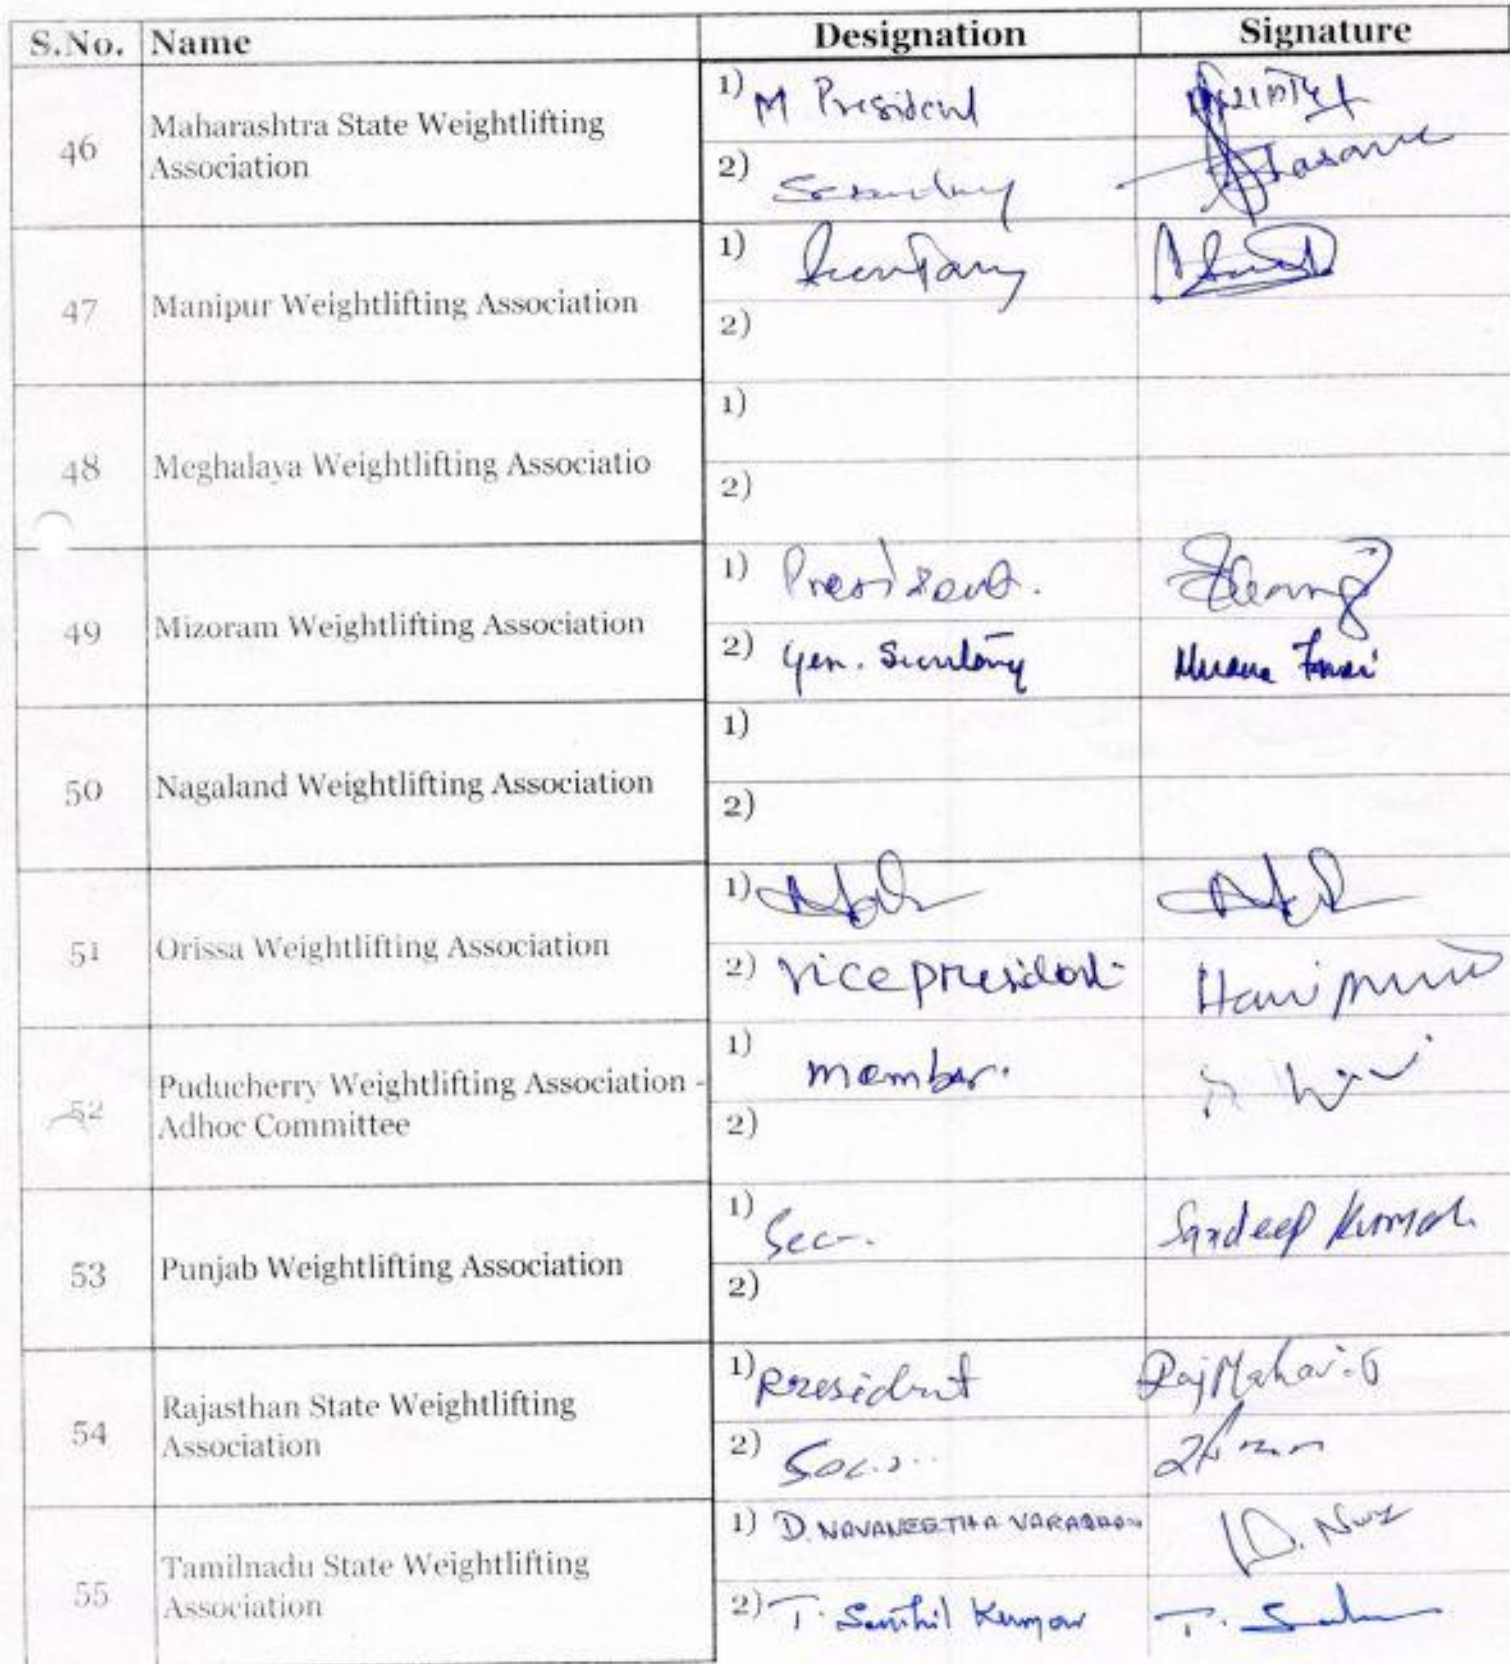 S.No. Name Designation Signature
46 Maharashtra State Weightlifting Association
1) M President
2) Secretary
47 Manipur Weightlifting Association
1) Secretary
2)
48 Meghalaya Weightlifting Associatio
1)
2)
49 Mizoram Weightlifting Association
1) President.
2) Gen. Secretary
50 Nagaland Weightlifting Association
1)
2)
51 Orissa Weightlifting Association
1)
2) vice president
52 Puducherry Weightlifting Association - Adhoc Committee
1) member.
2)
53 Punjab Weightlifting Association
1) Sec. Sandeep Kumar
2)
54 Rajasthan State Weightlifting Association
1) President
2) Sec..
55 Tamilnadu State Weightlifting Association
1) D. NAVANEETHA
2) T. Senthil Kumar